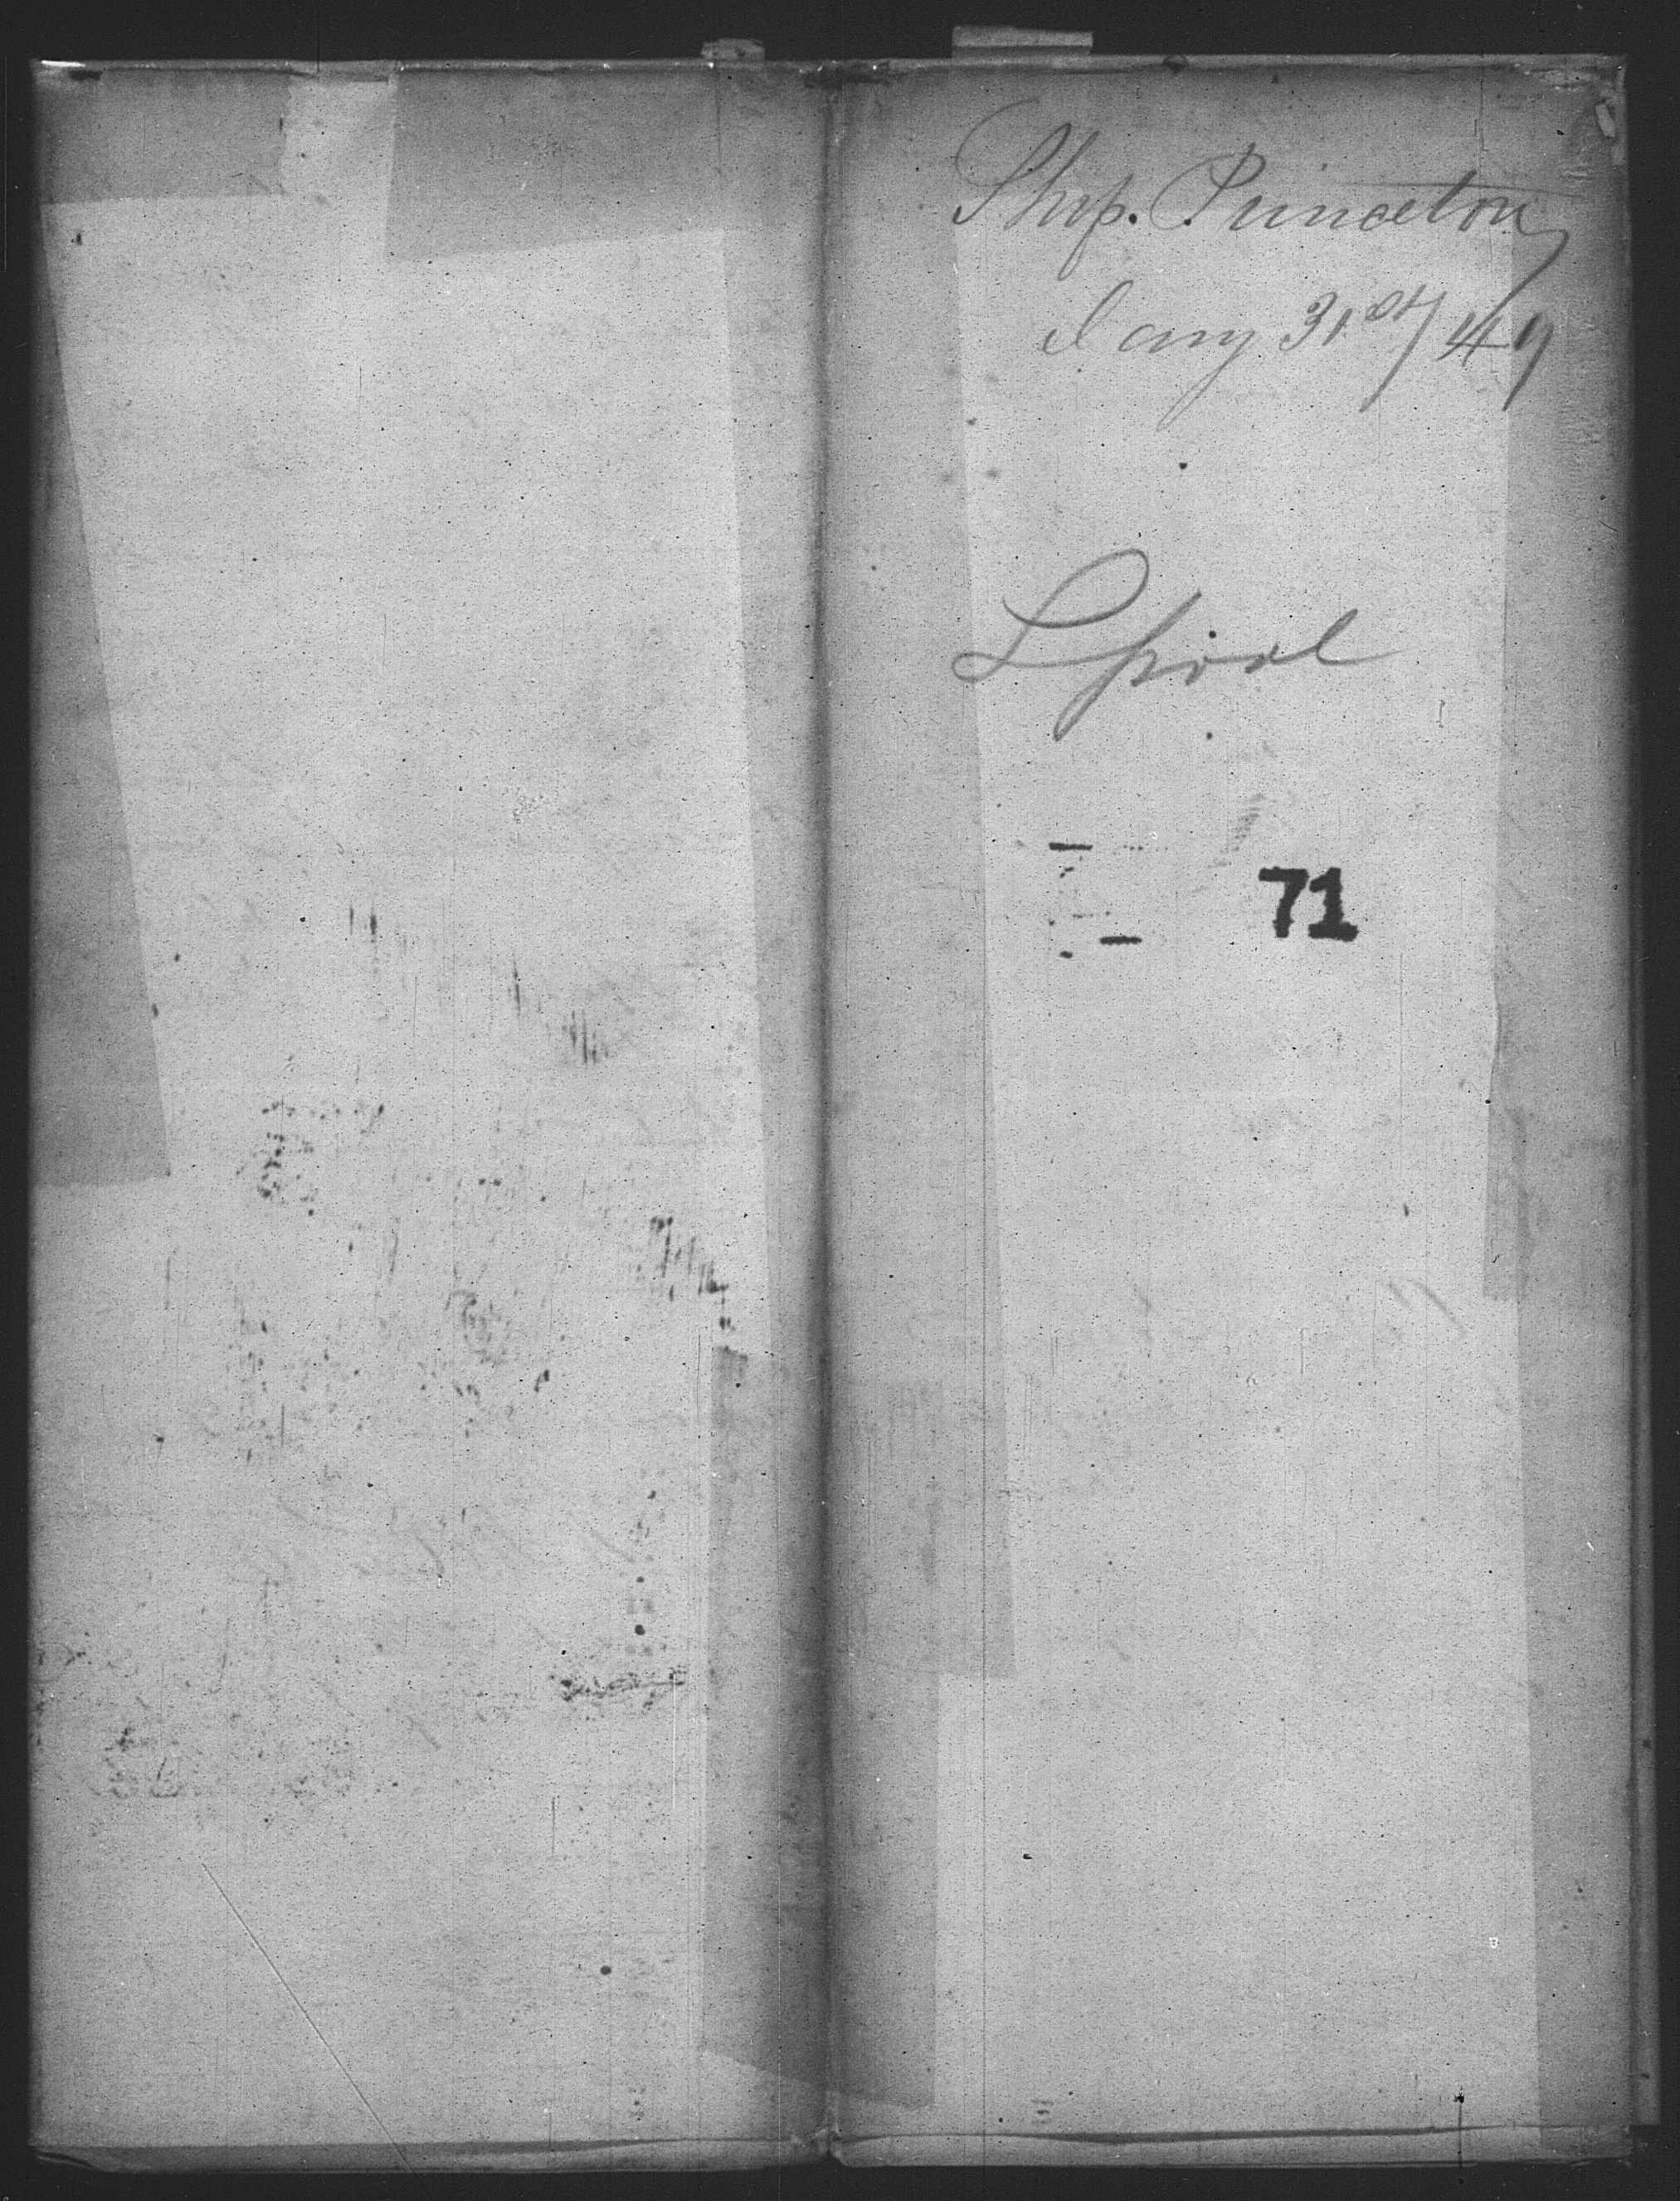 Ship. Princeton
Jany 31st/49
Lpool
71